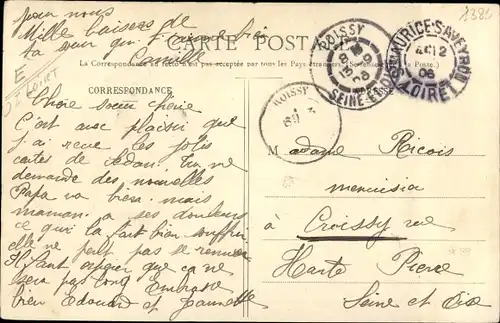 pour nous
Mille baisers de
ta sœur qui t'aime bien
Camille
1386
CARTE POSTALE
La Correspondance au recto n'est pas acceptée par tous les Pays étrangers (Se renseigner à la Poste.)
CORRESPONDANCE
ADRESSE
CROISSY
SEINE-ET-OISE
ST MAURICE-S-AVEYRON
12
06
LOIRET
E
Loiret
Chère sœur chérie
C'est avec plaisir que
j'ai reçue les jolis
cartes de Sedan. Tu me
demande des nouvelles
Papa va bien mais
maman a ses douleurs
ce qui la fait bien souffrir
elle ne peut pas se remuer
Il faut espérer que ça ne
sera pas long. Embrasse
bien Edouard et Jeannette
Madame Ricois
menuisier
à Croissy rue
Haute Pierre
Seine et Oise